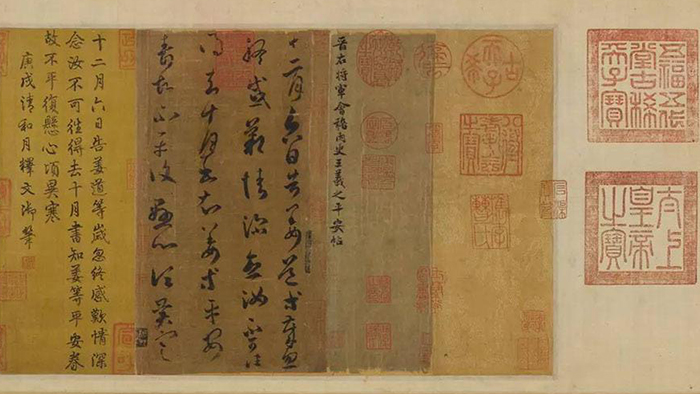 五福五代
堂古稀天
子寶
太上
皇帝
之寶
古稀
天子
八徵
耄念
之寶
晉右將軍會稽內史王羲之平安帖
十二月六日告姜道等歲忽
終感歎情深念汝不可往
得去十月書知姜等平安
壽故不平復懸心頃異寒
十二月六日告姜道等歲忽終感歎情深
念汝不可往得去十月書知姜等平安壽
故不平復懸心頃異寒
庚戌清和月釋文御筆